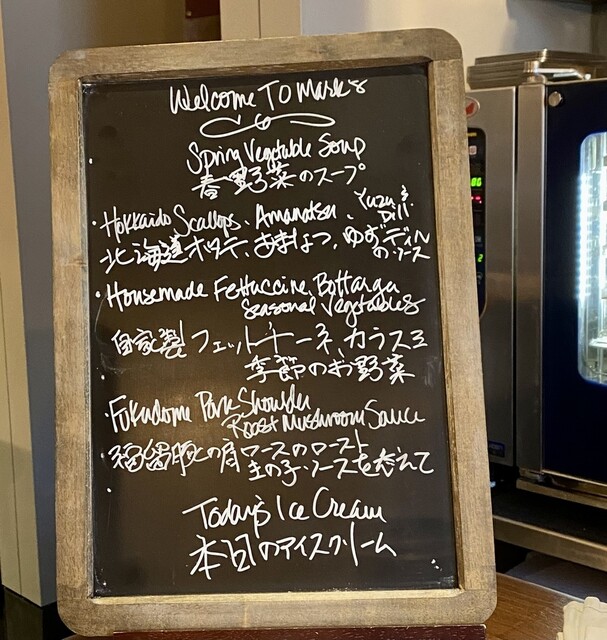 Welcome To Mark's
Spring Vegetable Soup
春野菜のスープ
・Hokkaido Scallops、Amanatsu、Yuzu & Dill
北海道ホタテ、あまなつ、ゆずディルのソース
・Housemade Fettuccine, Bottarga
Seasonal Vegetables
自家製フェットチーネ、カラスミ
季節のお野菜
・Fukudome Pork Shoulder
Roast Mushroom Sauce
福留豚の肩ロースのロースト
きの子ソースを添えて
Today's Ice Cream
本日のアイスクリーム